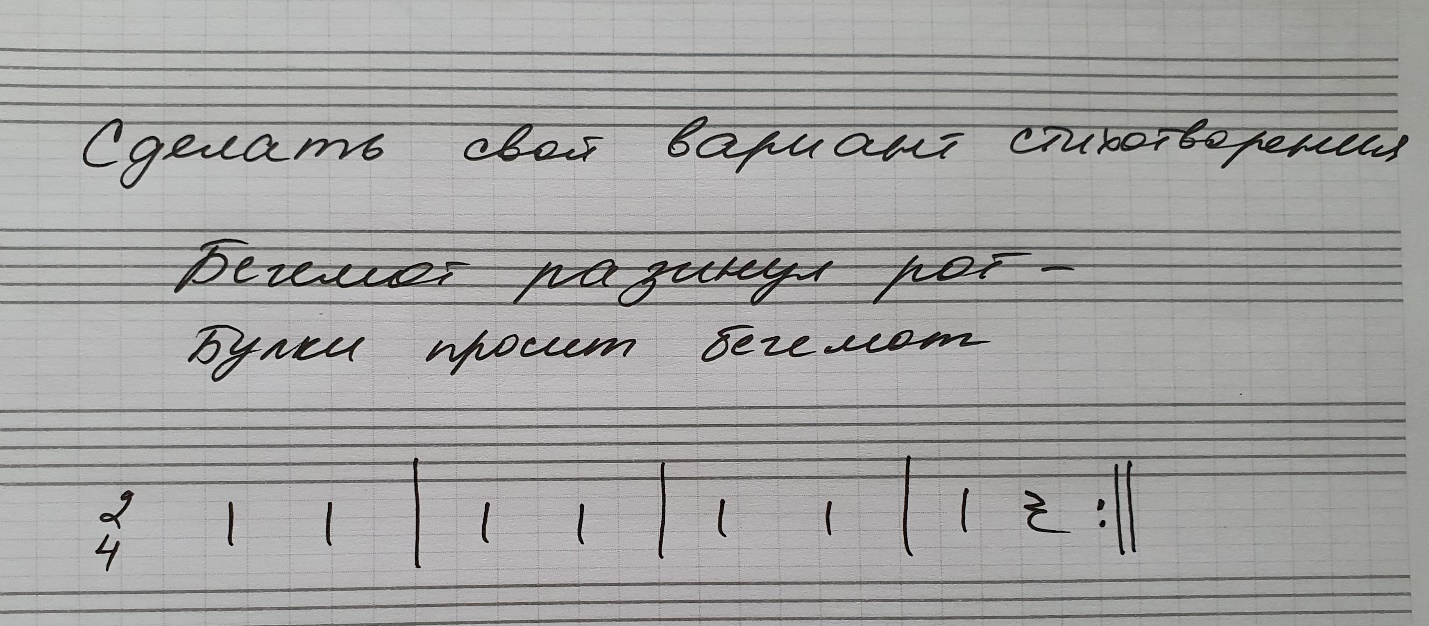 Сделать свой вариант стихотворения
Бегемот разинул рот -
Булки просит бегемот
2
4